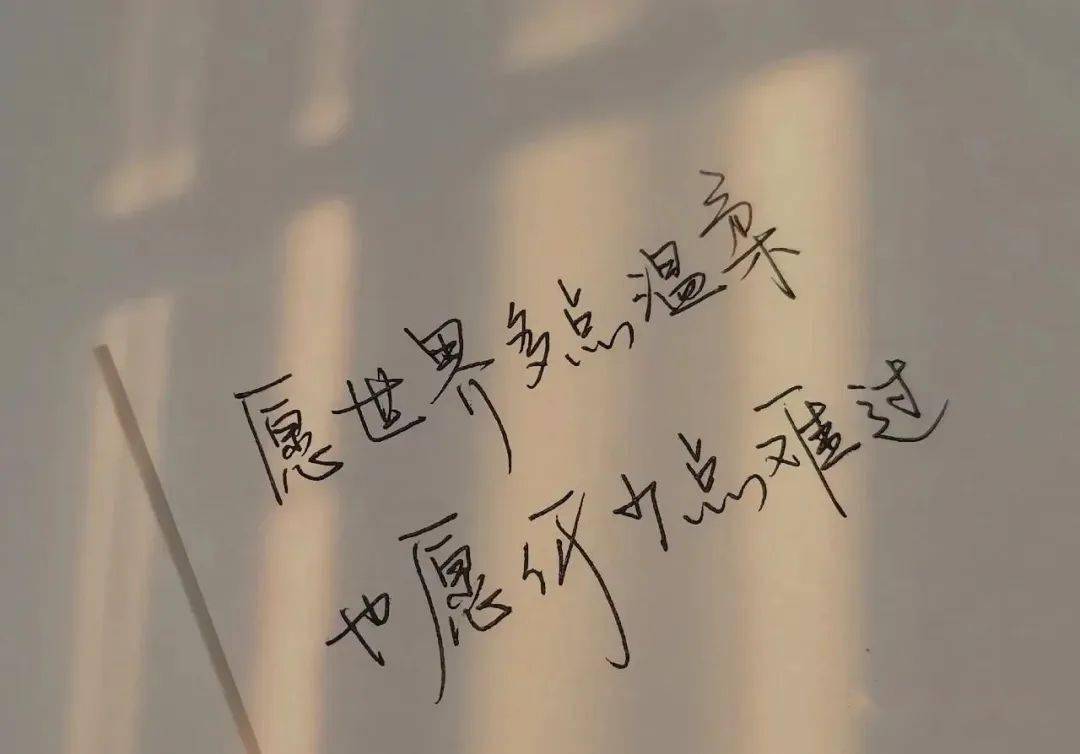 愿世界多点温柔
也愿你少点难过